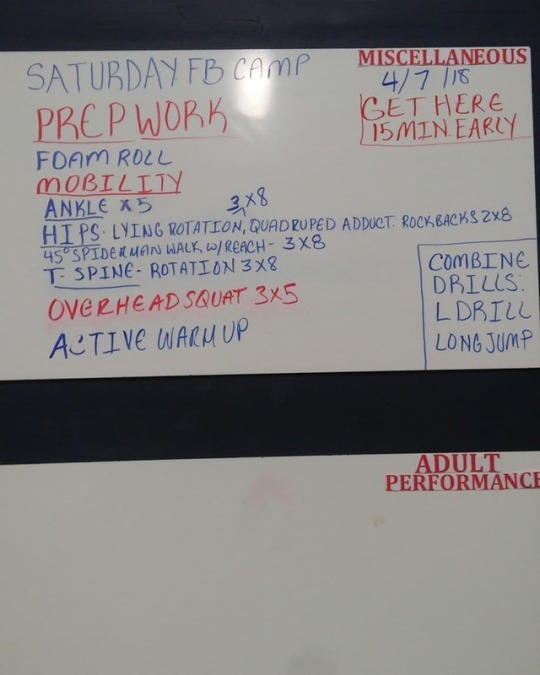 MISCELLANEOUS
SATURDAY FB CAMP
4/7/18
PREP WORK
GET HERE
15 MIN. EARLY
FOAM ROLL
MOBILITY
ANKLE x5 3x8
HIPS- LYING ROTATION, QUADRUPED ADDUCT. ROCKBACKS 2x8
45° SPIDERMAN WALK W/REACH- 3x8
T- SPINE- ROTATION 3x8
OVERHEAD SQUAT 3x5
ACTIVE WARM UP
COMBINE
DRILLS:
L DRILL
LONG JUMP
ADULT
PERFORMANCE